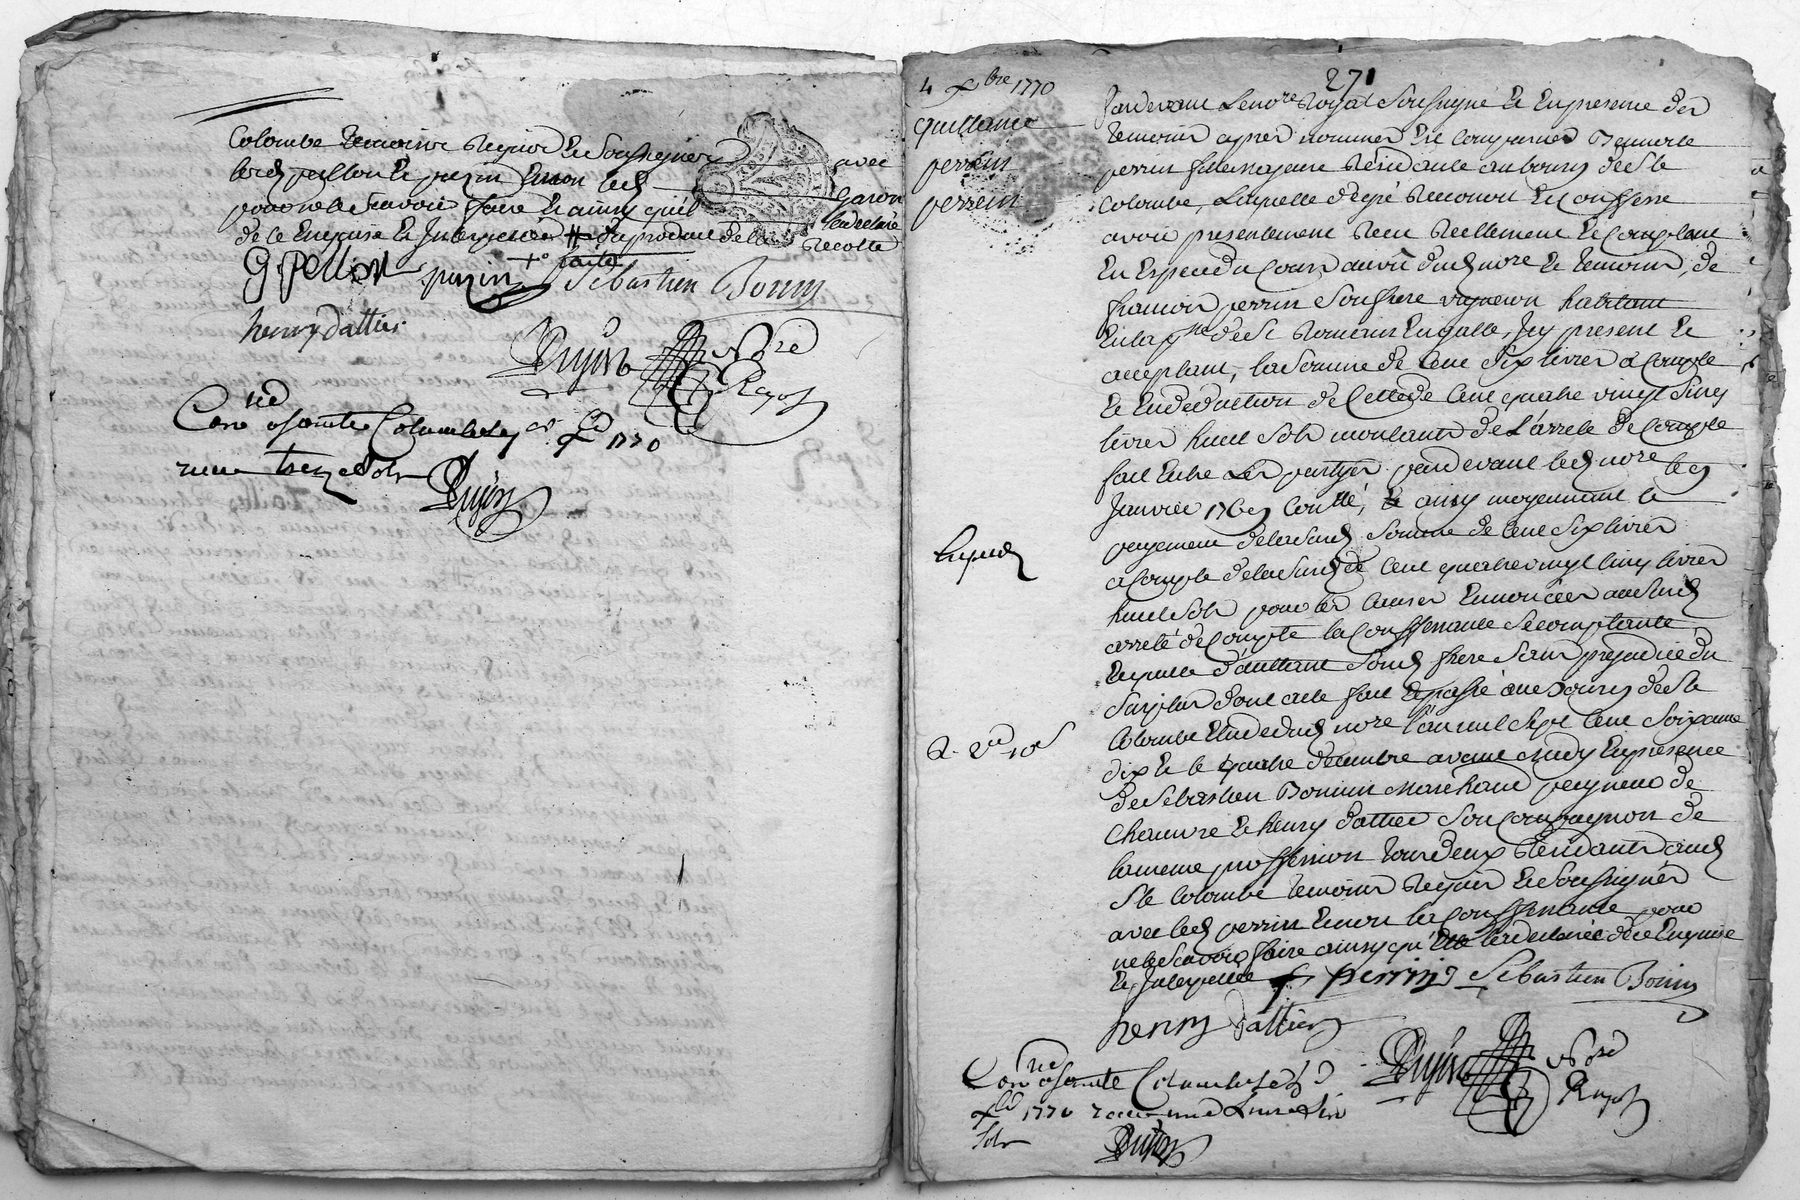 Colombe temoins requis et soussignés avec
led pellon et puzin et non led Garon
pour ne le scavoir faire et ainsy qu'il l'a declaré
de ce enquis et interpellé # du produit de la recolte
+ partie
G pellon puzin Sebastien Bonin
henry dattier
Dujon Nore Royal
Conné a Sainte Colombe le xbre 1770
recu treze sols
Dujon
271
4 xbre 1770
quittance
perrin
perrein
Pardevant le nore Royal soussigné et en presence des
temoins apres nommés est comparue Benoite
perrin fille majeure residante au bourg de Ste
Colombe, laquelle de gré reconoit et confesse
avoir presentement recu reellement et comptant
en especes du cours au vû dud nore et temoins, de
francois perrin son frere vigneron habitant
en la psse de St Romain en galle, icy present et
acceptant, la somme de cent six livres a compte
et en deduction de celle de cent quatre vingt cinq
livres huit sols montant de l'arreté de compte
fait entre les partyes pardevant led nore le 9
janvier 1769 conllé, et ainsy moyennant le
payement de lasusd somme de cent six livres
a compte de lasusd de cent quatre vingt cinq livres
huit sols pour les causes enoncées ausud
arreté de compte la confessante se contente
et quitte d'autant sond frere sans prejudice du
surplus dont acte fait et passé aud bourg de Ste
Colombe etude dud nore l'an mil sept cent soixante
dix et le quatre decembre avant midy en presence
de Sebastien Bonnin marchand peigneur de
chanvre et henry dattier son compagnon de
la meme proffession tous deux residants aud
Ste Colombe temoins requis et soussignés
avec led perrin et non la confessante pour
ne le scavoir faire ainsy qu'elle l'a declaré de ce enquise
et interpellée f perrin Sebastien Bonin
henry dattier
Dujon Nore Royal
Conné a Sainte Colombe le
xbre 1770 recu une livre six
sols
Dujon